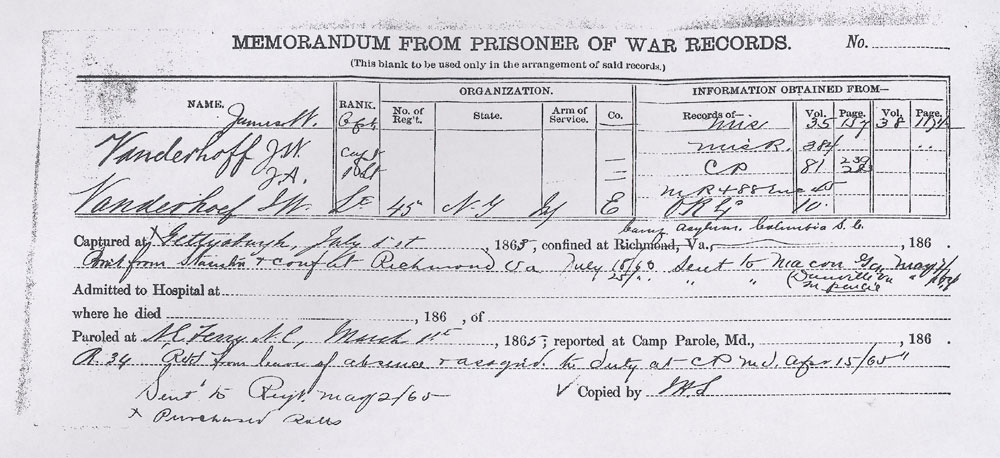 MEMORANDUM FROM PRISONER OF WAR RECORDS. No.
(This blank to be used only in the arrangement of said records.)
NAME. RANK. ORGANIZATION. INFORMATION OBTAINED FROM—
No. of Reg't. State. Arm of Service. Co. Records of— Vol. Page. Vol. Page.
James W. Capt. Mis 35 157 38
Vanderhoff J.W. Capt Mis R.
J.A. 1st Lt CP 81 239
Vanderhoef J W Lt 45" N.Y Inf E 10
Camp Asylum, Columbia S.C.
Captured at x Gettysburgh, July 1st, 1863, confined at Richmond, Va., , 186 .
from Staunton & conf at Richmond Va July 18/63 Sent to Macon Ga May 7/64
25/ " " " (Danville on
in pencil
Admitted to Hospital at
where he died , 186 , of
Paroled at N.E. Ferry N.C, March 1st, 1865; reported at Camp Parole, Md., , 186 .
R. 34 Retd from leave of absence & assignd. to duty at CP Md. Apr 15/65"
Sent to Regt. May 12/65 √ Copied by
x Purchased Rolls